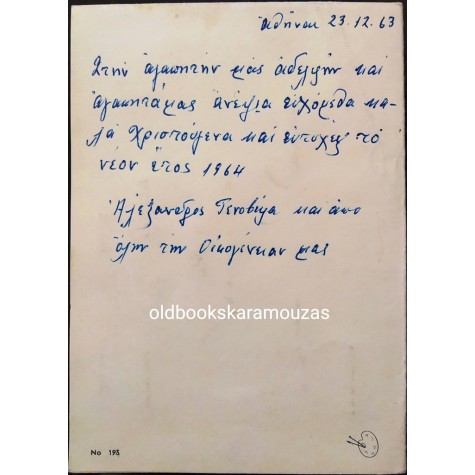 Ἀθῆναι 23.12.63
Στήν ἀγαπητήν μας ἀδελφήν καί
ἀγαπητά μας ἀνέψια εὐχόμεθα κα-
λά Χριστούγενα καί εὐτυχές τό
νέον ἔτος 1964
Ἀλέξανδρος Γενοβίγα καί ἀπο
ὅλην τήν Οἰκογένειαν μας
oldbookskaramouzas
No 193